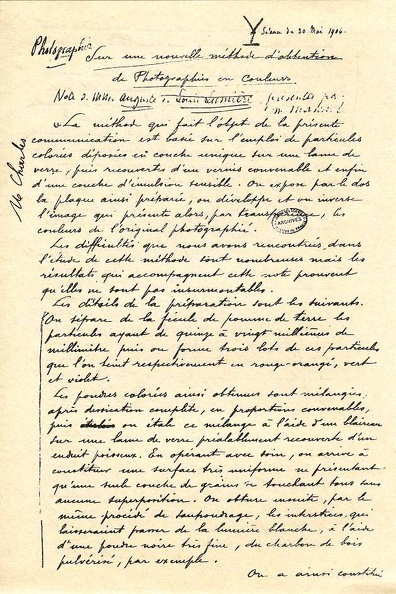 Séance du 30 Mai 1904.
Photographie
Sur une nouvelle méthode d'obtention
de Photographies en Couleurs.
Note de MM. Auguste et Louis Lumière, présentée par
M. Mascart
Mo Charles
« La méthode qui fait l'objet de la présente
communication est basée sur l'emploi de particules
colorées déposées en couche unique sur une lame de
verre, puis recouvertes d'un vernis convenable et enfin
d'une couche d'émulsion sensible. On expose par le dos
la plaque ainsi préparée, on développe et on inverse
l'image qui présente alors, par transparence, les
couleurs de l'original photographié.
ARCHIVES
Les difficultés que nous avons rencontrées dans
l'étude de cette méthode sont nombreuses mais les
résultats qui accompagnent cette note prouvent
qu'elles ne sont pas insurmontables.
Les détails de la préparation sont les suivants.
On sépare de la fécule de pomme de terre les
particules ayant de quinze à vingt millièmes de
millimètre puis on forme trois lots de ces particules
que l'on teint respectivement en rouge-orangé, vert
et violet.
Les poudres colorées ainsi obtenues sont mélangées
après dessication complète, en proportions convenables,
puis on étale ce mélange à l'aide d'un blaireau
sur une lame de verre préalablement recouverte d'un
enduit poisseux. En opérant avec soin, on arrive à
constituer une surface très uniforme ne présentant
qu'une seule couche de grains se touchant tous sans
aucune superposition. On obture ensuite, par le
même procédé de saupoudrage, les interstices, qui
laisseraient passer de la lumière blanche, à l'aide
d'une poudre noire très fine, du charbon de bois
pulvérisé, par exemple.
On a ainsi constitué